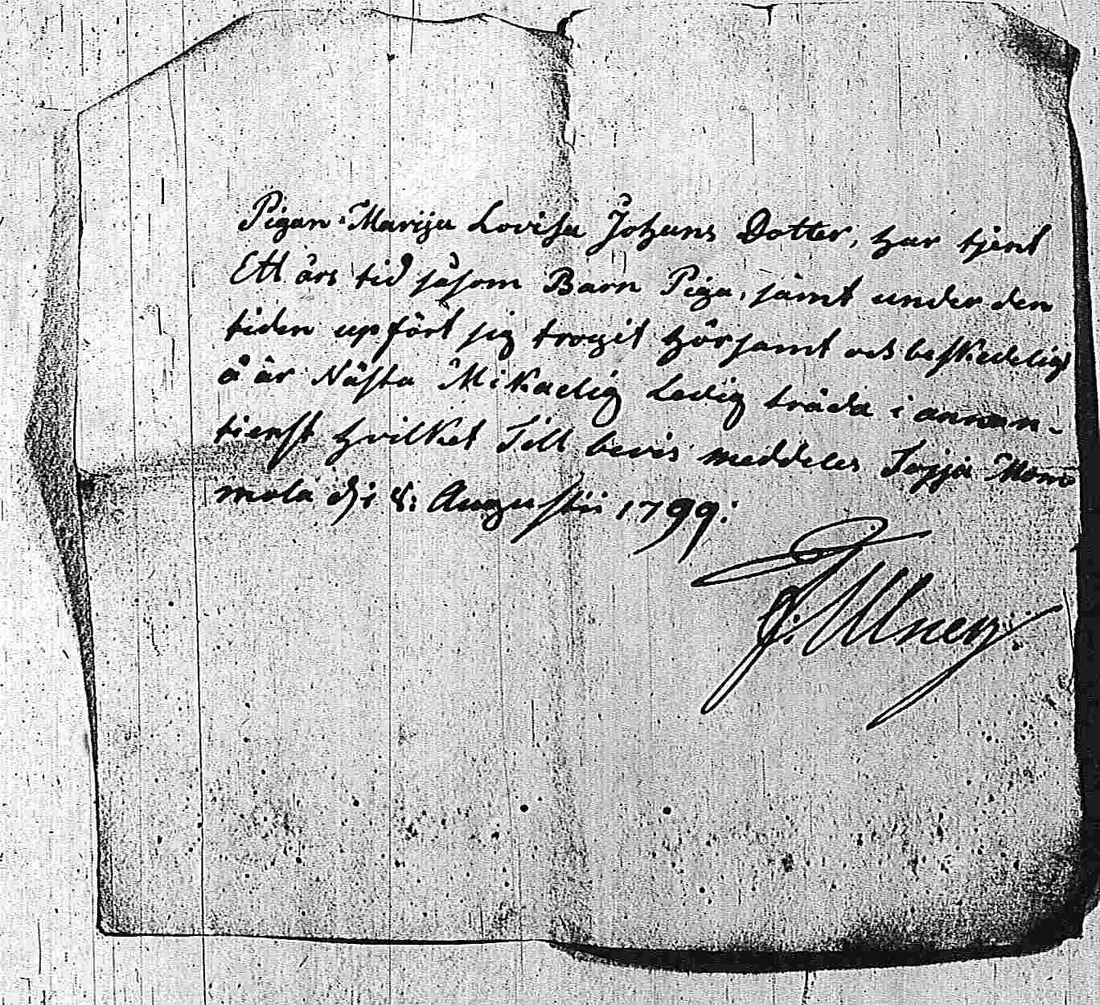 Pigan Marija Lovisa Johans Dotter, har tjent
Ett års tid såsom Barn Piga, samt under den
tiden upfört sig trogit hörsamt och beskedeligt
å är Nästa Mikaelig Ledig träda i annan-
tienst hvilket Till bevis meddeles Mom
mola d: 8: Augustii 1799: